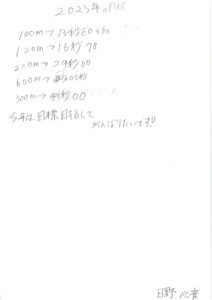 2025年の目標
100m→13秒80
120m→16秒78
200m→29秒00
600m→205秒
300m→49秒00
今年は目標目指して
がんばりたいです!!
日野 心音